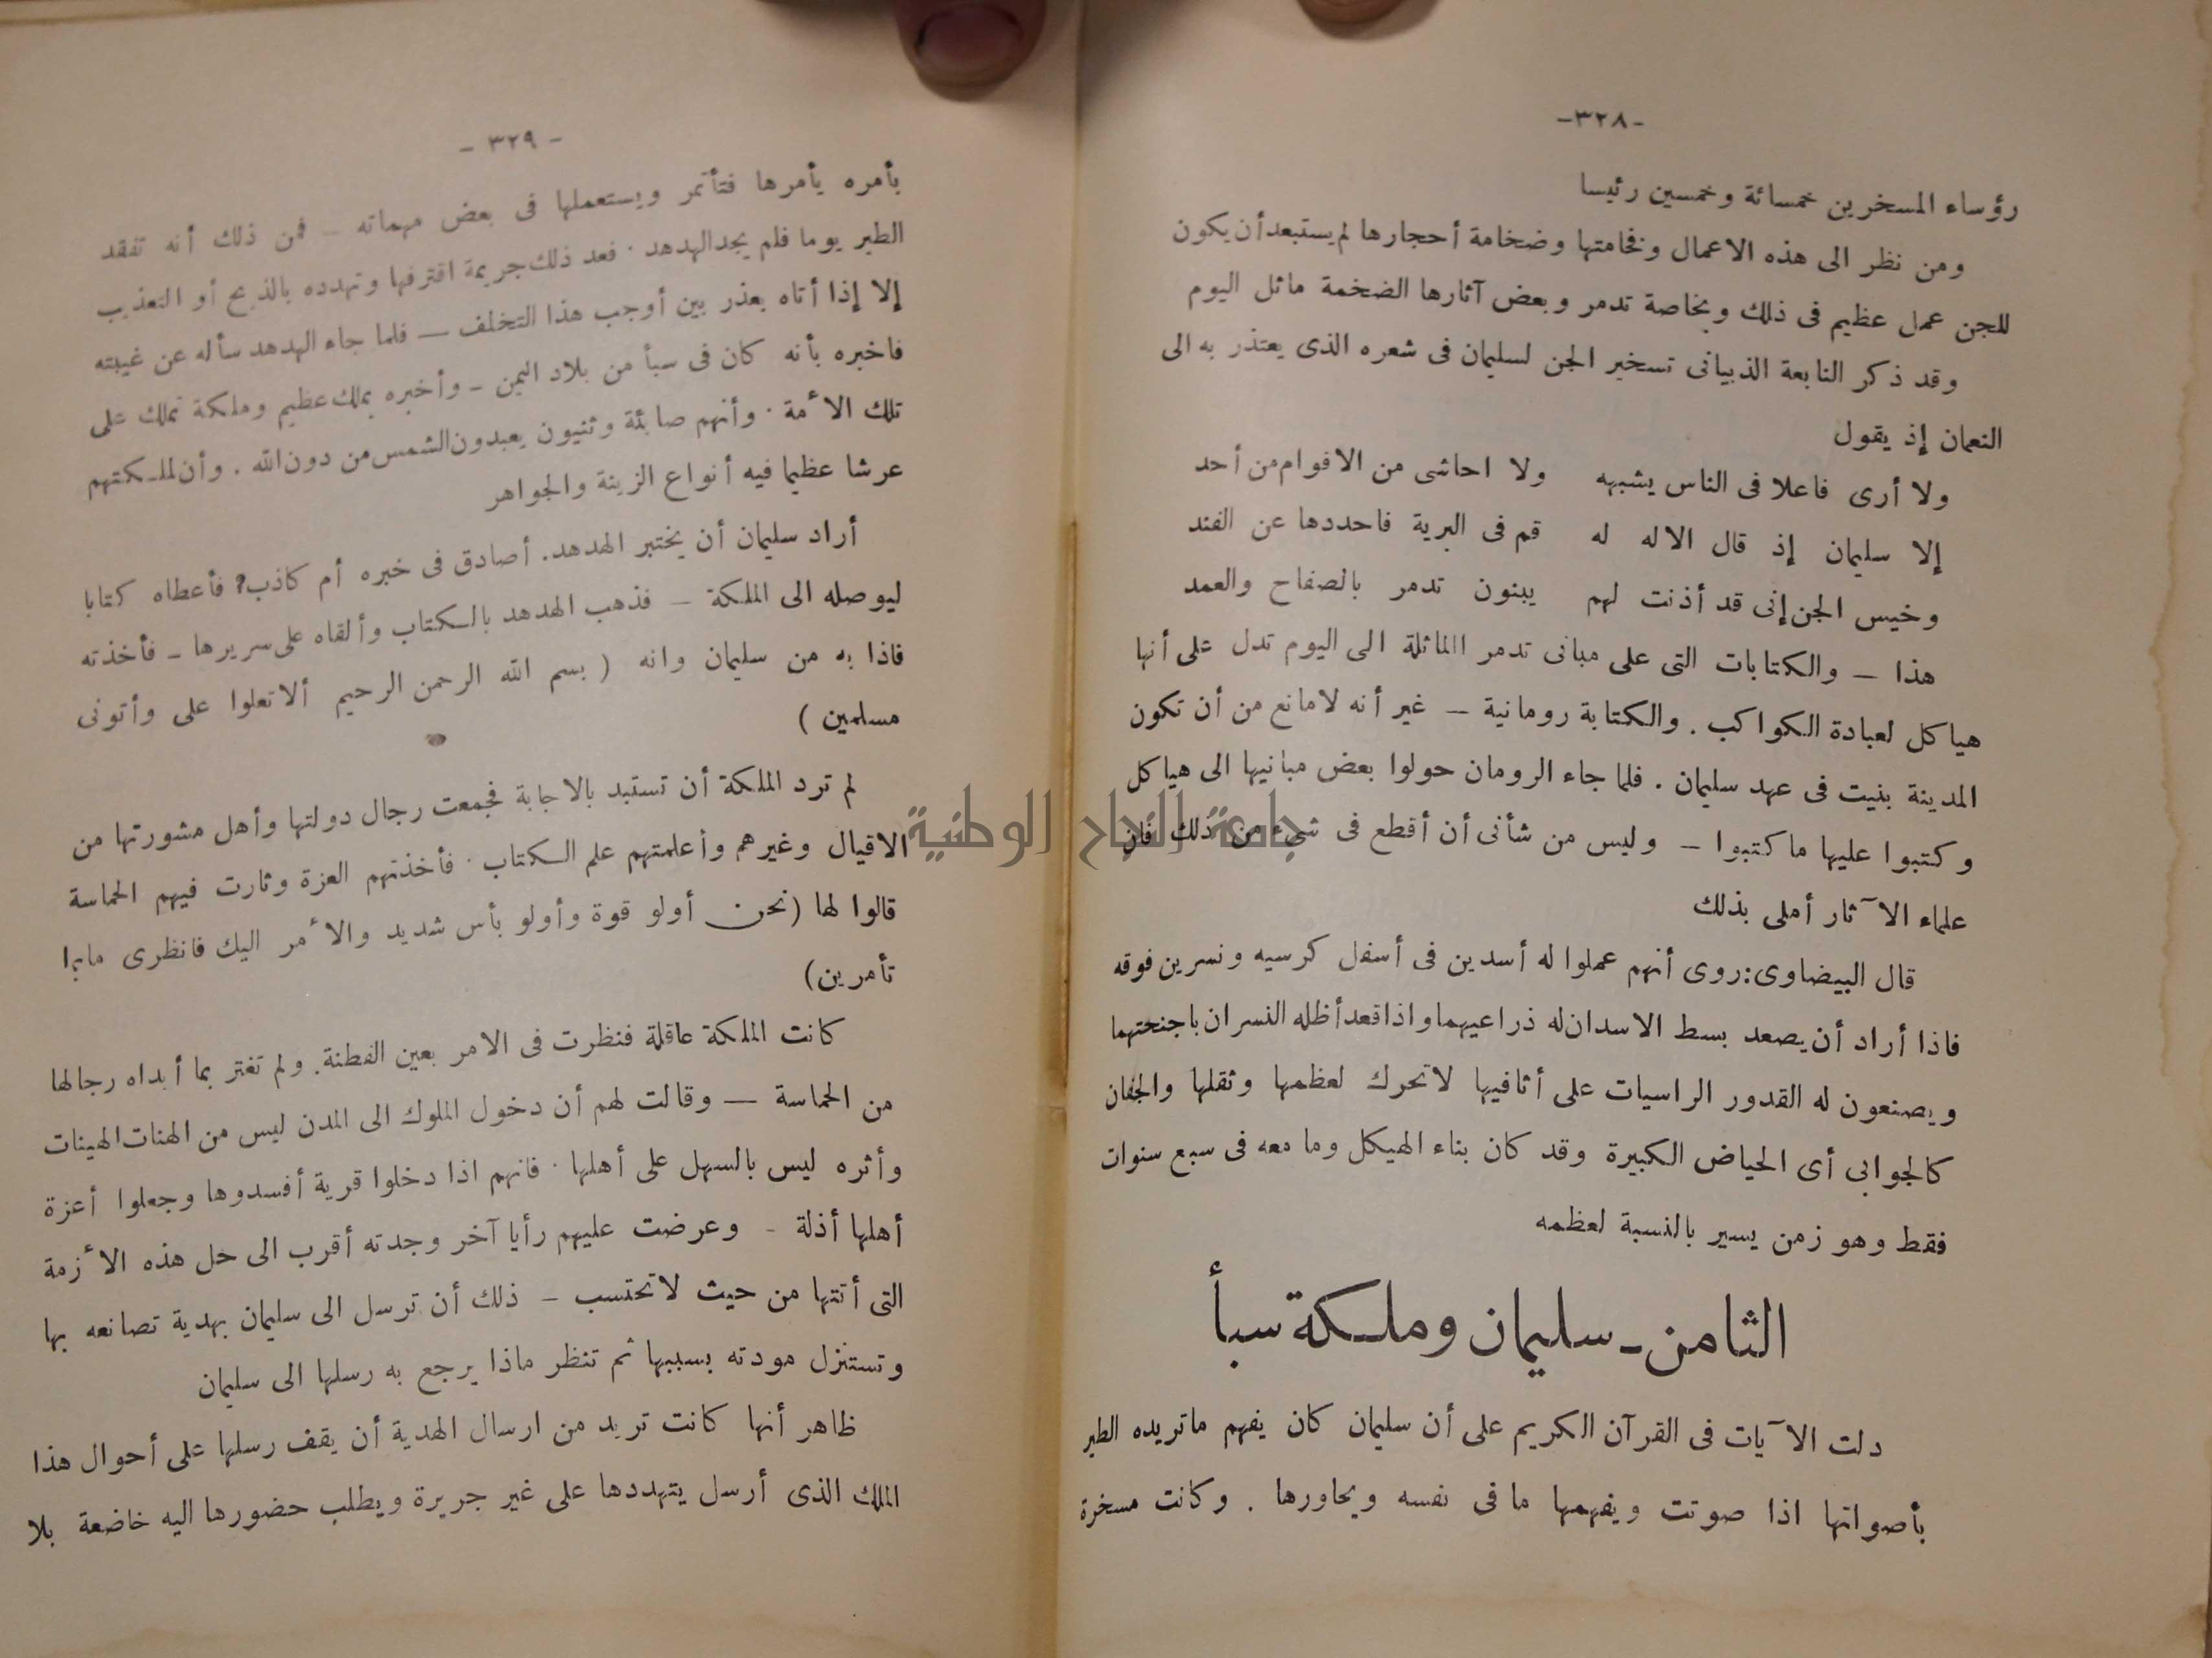 -٣٢٨-
رؤساء المسخرين خمسمائة وخمسين رئيسا
ومن نظر الى هذه الاعمال وفخامتها وضخامة أحجارها لم يستبعد أن يكون
للجن عمل عظيم فى ذلك وبخاصة تدمر وبعض آثارها الضخمة ماثل اليوم
وقد ذكر النابغة الذبيانى تسخير الجن لسليمان فى شعره الذى يعتذر به الى
النعمان إذ يقول
ولا أرى فاعلا فى الناس يشبهه ولا احاشى من الاقوام من أحد
إلا سليمان إذ قال الاله له قم فى البرية فاحددها عن الفند
وخيس الجن إنى قد أذنت لهم يبنون تدمر بالصفاح والعمد
هذا — والكتابات التى على مبانى تدمر الماثلة الى اليوم تدل على أنها
هياكل لعبادة الكواكب . والكتابة رومانية — غير أنه لامانع من أن تكون
المدينة بنيت فى عهد سليمان . فلما جاء الرومان حولوا بعض مبانيها الى هياكل
وكتبوا عليها ما كتبوا - وليس من شأنى أن أقطع فى شىء من ذلك فان
علماء الآثار أملى بذلك
قال البيضاوى: روى أنهم عملوا له أسدين فى أسفل كرسيه ونسرين فوقه
فاذا أراد أن يصعد بسط الاسدان له ذراعيهما واذا قعد أظله النسران باجنحتهما
ويصنعون له القدور الراسيات على أثافيها لاتحرك لعظمها وثقلها والجفان
كالجوابى أى الحياض الكبيرة وقد كان بناء الهيكل وما معه فى سبع سنوات
فقط وهو زمن يسير بالنسبة لعظمه
الثامن - سليمان وملكة سبأ
دلت الآيات فى القرآن الكريم على أن سليمان كان يفهم ماتريده الطير
بأصواتها اذا صوتت ويفهمها ما فى نفسه ويحاورها . وكانت مسخرة
- ٣٢٩ -
بأمره يأمرها فتأتمر ويستعملها فى بعض مهماته - فمن ذلك أنه تفقد
الطير يوما فلم يجد الهدهد . فعد ذلك جريمة اقترفها وتهدده بالذبح أو التعذيب
إلا إذا أتاه بعذر بين أوجب هذا التخلف — فلما جاء الهدهد سأله عن غيبته
فاخبره بأنه كان فى سبأ من بلاد اليمن - وأخبره بملك عظيم وملكة تملك على
تلك الأمة . وأنهم صابئة وثنيون يعبدون الشمس من دون الله . وأن لملكتهم
عرشا عظيما فيه أنواع الزينة والجواهر
أراد سليمان أن يختبر الهدهد. أصادق فى خبره أم كاذب؟ فأعطاه كتابا
ليوصله الى الملكة - فذهب الهدهد بالكتاب وألقاه على سريرها - فأخذته
فاذا به من سليمان وانه ( بسم الله الرحمن الرحيم ألاتعلوا على وأتونى
مسلمين )
لم ترد الملكة أن تستبد بالاجابة فجمعت رجال دولتها وأهل مشورتها من
الاقيال وغيرهم وأعلمتهم علم الكتاب . فأخذتهم العزة وثارت فيهم الحماسة
قالوا لها (نحن أولو قوة وأولو بأس شديد والأمر اليك فانظرى ماذا
تأمرين)
كانت الملكة عاقلة فنظرت فى الامر بعين الفطنة. ولم تغتر بما أبداه رجالها
من الحماسة — وقالت لهم أن دخول الملوك الى المدن ليس من الهنات الهينات
وأثره ليس بالسهل على أهلها . فانهم اذا دخلوا قرية أفسدوها وجعلوا أعزة
أهلها أذلة - وعرضت عليهم رأيا آخر وجدته أقرب الى حل هذه الأزمة
التى أتتها من حيث لاتحتسب - ذلك أن ترسل الى سليمان بهدية تصانعه بها
وتستنزل مودته بسببها ثم تنظر ماذا يرجع به رسلها الى سليمان
ظاهر أنها كانت تريد من ارسال الهدية أن يقف رسلها على أحوال هذا
الملك الذى أرسل يتهددها على غير جريرة ويطلب حضورها اليه خاضعة بلا
جامعة النجاح الوطنية